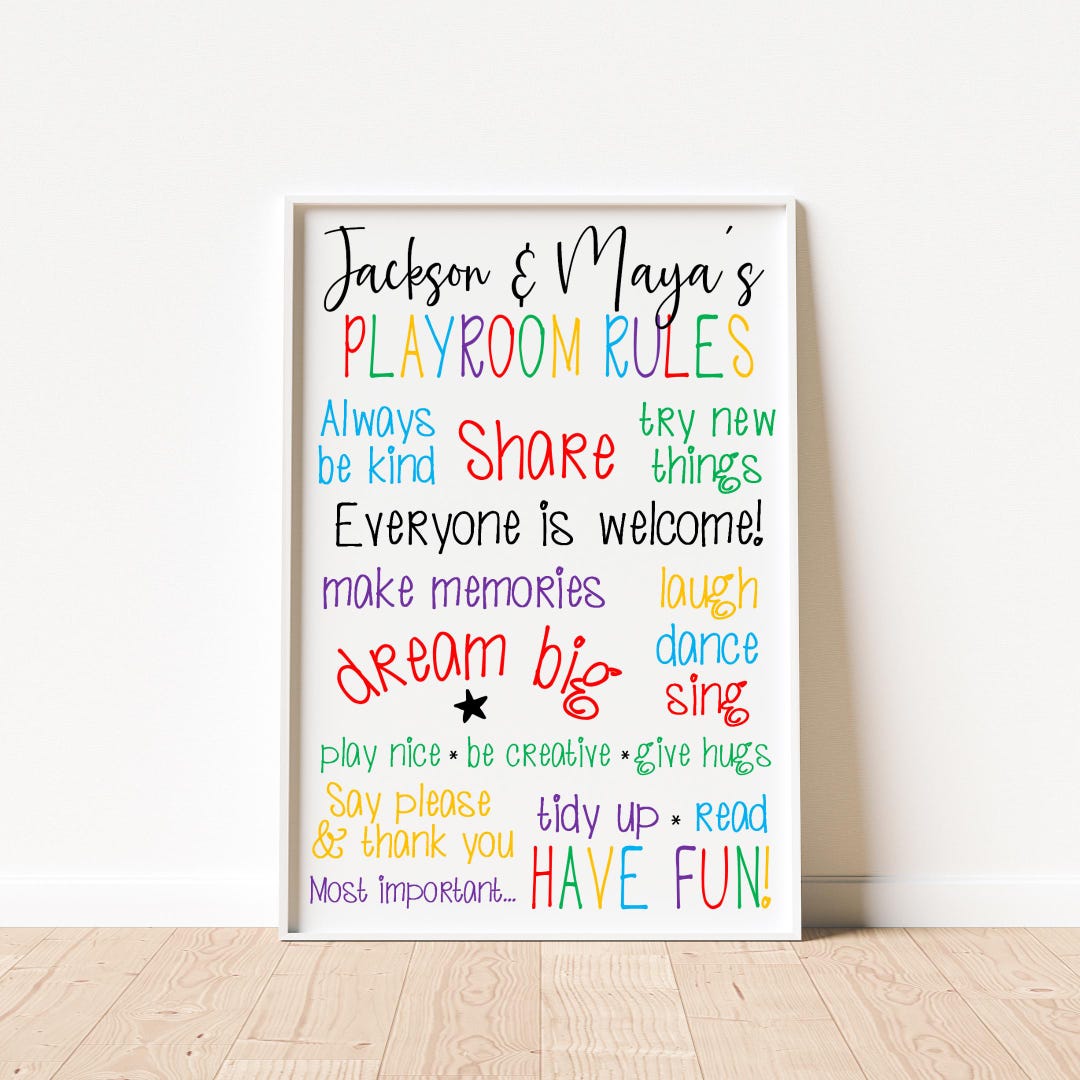 Jackson & Maya's
PLAYROOM RULES
Always
be kind
Share
try new
things
Everyone is welcome!
make memories
laugh
dance
sing
dream big
play nice * be creative * give hugs
Say please
& thank you
tidy up * read
Most important...
HAVE FUN!